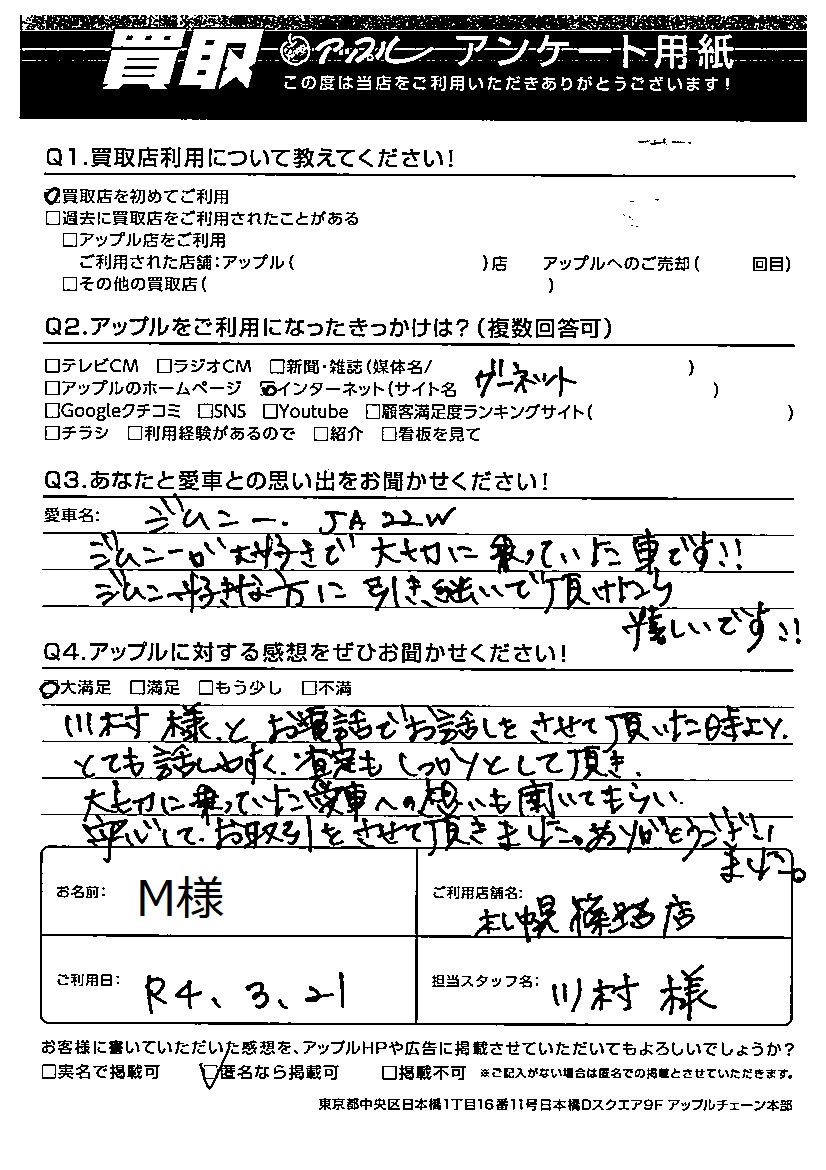 買取 アップル アンケート用紙
この度は当店をご利用いただきありがとうございます!
Q1.買取店利用について教えてください!
☑買取店を初めてご利用
□過去に買取店をご利用されたことがある
□アップル店をご利用
ご利用された店舗:アップル( )店 アップルへのご売却( 回目)
□その他の買取店( )
Q2.アップルをご利用になったきっかけは?(複数回答可)
□テレビCM □ラジオCM □新聞・雑誌(媒体名/ )
□アップルのホームページ ☑インターネット(サイト名 ガーネット )
□Googleクチコミ □SNS □Youtube □顧客満足度ランキングサイト( )
□チラシ □利用経験があるので □紹介 □看板を見て
Q3.あなたと愛車との思い出をお聞かせください!
愛車名: ジムニー. JA22W
ジムニーが大好きで大切に乗っていた車です!!
ジムニー好きな方に引き継いで頂けたら
嬉しいです!!
Q4.アップルに対する感想をぜひお聞かせください!
☑大満足 □満足 □もう少し □不満
川村様とお電話でお話しをさせて頂いた時より、
とても話しやすく、査定もしっかりとして頂き、
大切に乗っていた愛車への想いも聞いてもらい
安心して、お取引をさせて頂きました。ありがとうござい
ました。
お名前: M様
ご利用店舗名: 札幌篠路店
ご利用日: R4、3、21
担当スタッフ名: 川村様
お客様に書いていただいた感想を、アップルHPや広告に掲載させていただいてもよろしいでしょうか?
□実名で掲載可 ☑匿名なら掲載可 □掲載不可 ※ご記入がない場合は匿名での掲載とさせていただきます。
東京都中央区日本橋1丁目16番11号日本橋Dスクエア9F アップルチェーン本部